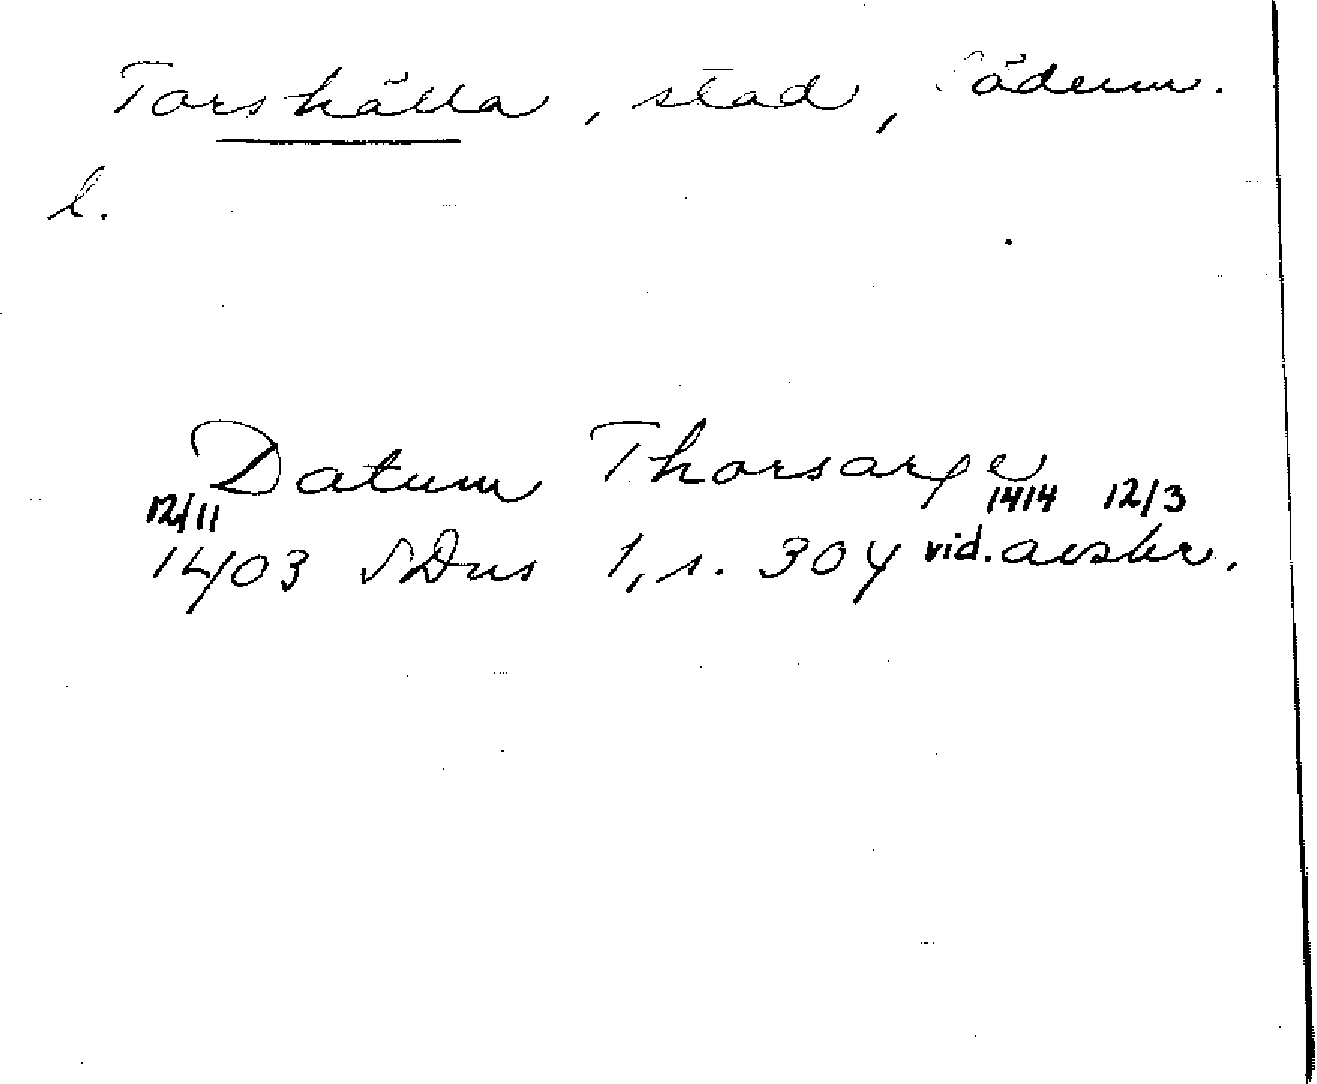 Torshälla, stad, Söderm.
l.
Datum Thorsarge
12/11 1414 12/3
1403 SDns 1, s. 304 vid. avskr.